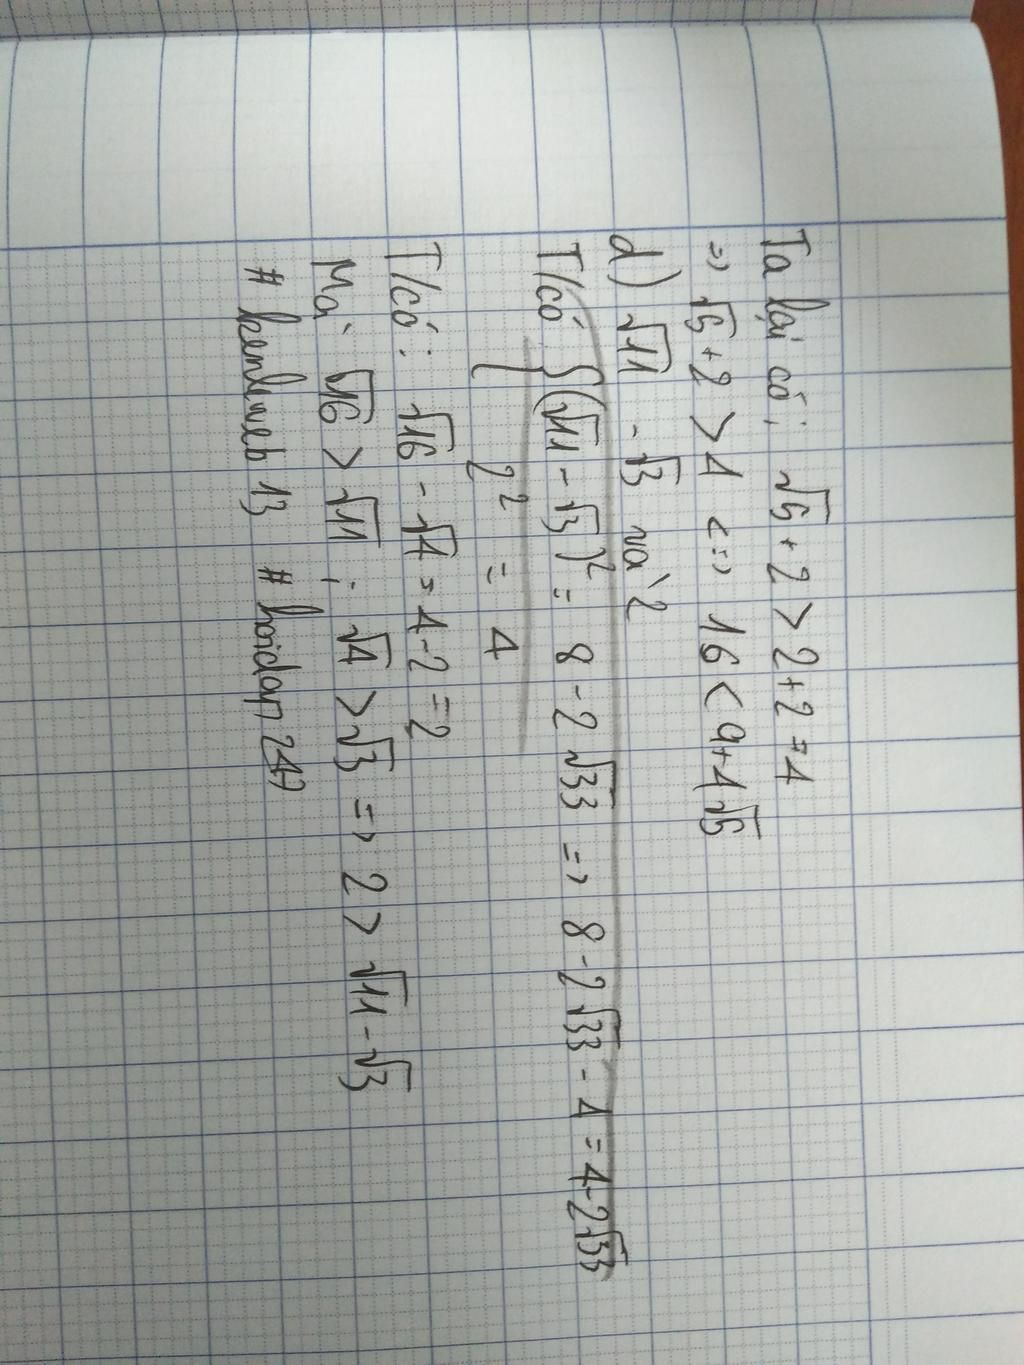 Ta lại có: √5 + 2 > 2 + 2 = 4
=> √5 + 2 > 4 <=> 16 < 9 + 4√5
d) √11 - √3 và 2
T/có { (√11 - √3)² = 8 - 2√33 => 8 - 2√33 - 4 = 4 - 2√33
2² = 4
T/có: √16 - √4 = 4 - 2 = 2
Mà √16 > √11 ; √4 > √3 => 2 > √11 - √3
# kenlweb13 # hoidap247